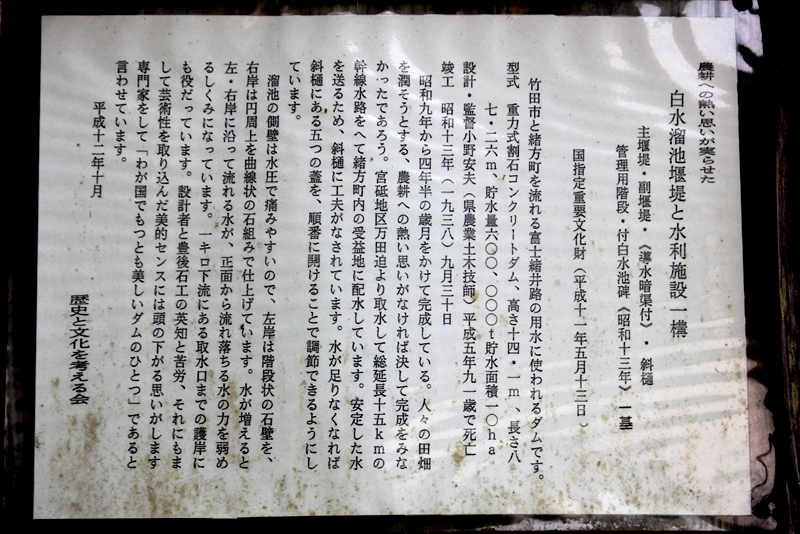 農耕への熱い思いが実らせた
白水溜池堰堤と水利施設一構
主堰堤・副堰堤・《導水暗渠付》・斜樋
管理用階段・付白水池碑《昭和十三年》一基
国指定重要文化財（平成十一年五月十三日）
竹田市と緒方町を流れる富士緒井路の用水に使われるダムです。
型式　重力式割石コンクリートダム、高さ十四・一m、長さ八
七・二六m、貯水量六〇〇、〇〇〇t貯水面積一〇ha
設計・監督小野安夫（県農業土木技師）平成五年九一歳で死亡
竣工　昭和十三年（一九三八）九月三十日
昭和九年から四年半の歳月をかけて完成している。人々の田畑
を潤そうとする、農耕への熱い思いがなければ決して完成をみな
かったであろう。宮砥地区万田迫より取水して総延長十五kmの
幹線水路をへて緒方町内の受益地に配水しています。安定した水
を送るため、斜樋に工夫がなされています。水が足りなくなれば
斜樋にある五つの蓋を、順番に開けることで調節できるようにし
ています。
溜池の側壁は水圧で痛みやすいので、左岸は階段状の石壁を、
右岸は円周上を曲線状の石組みで仕上げています。水が増えると
左・右岸に沿って流れる水が、正面から流れ落ちる水の力を弱め
るしくみになっています。一キロ下流にある取水口までの護岸に
も役だっています。設計者と豊後石工の英知と苦労、それにもま
して芸術性を取り込んだ美的センスには頭の下がる思いがします
専門家をして「わが国でもつとも美しいダムのひとつ」であると
言わせています。
平成十二年十月
歴史と文化を考える会